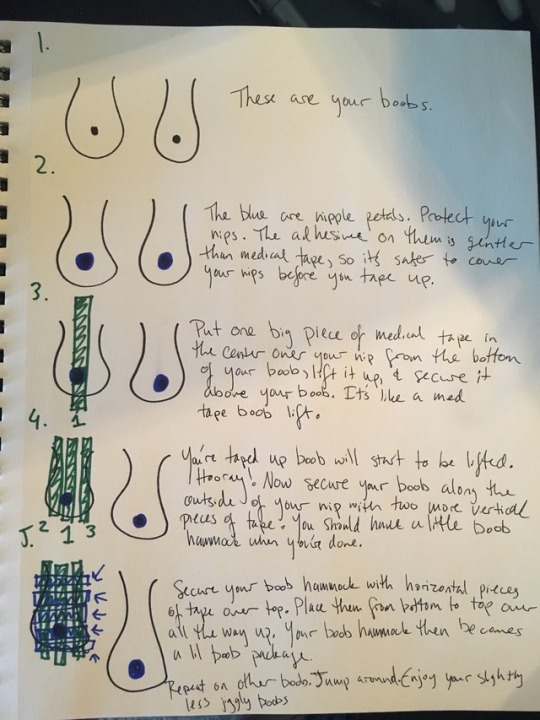 1.
These are your boobs.
2.
The blue are nipple petals. Protect your
nips. The adhesive on them is gentler
than medical tape, so its safer to cover
your nips before you tape up.
3.
Put one big piece of medical tape in
the center over your nip from the bottom
of your boob, lift it up, & secure it
above your boob. It's like a med
tape boob lift.
1
4.
You're taped up boob will start to be lifted.
Hooray! Now secure your boob along the
outside of your nip with two more vertical
pieces of tape. You should have a little boob
hammock when you're done.
2 1 3
5.
Secure your boob hammock with horizontal pieces
of tape over top. Place them from bottom to top over
all the way up. Your boob hammock then becomes
a lil boob package.
Repeat on other boob. Jump around. Enjoy your slightly
less jiggly boobs